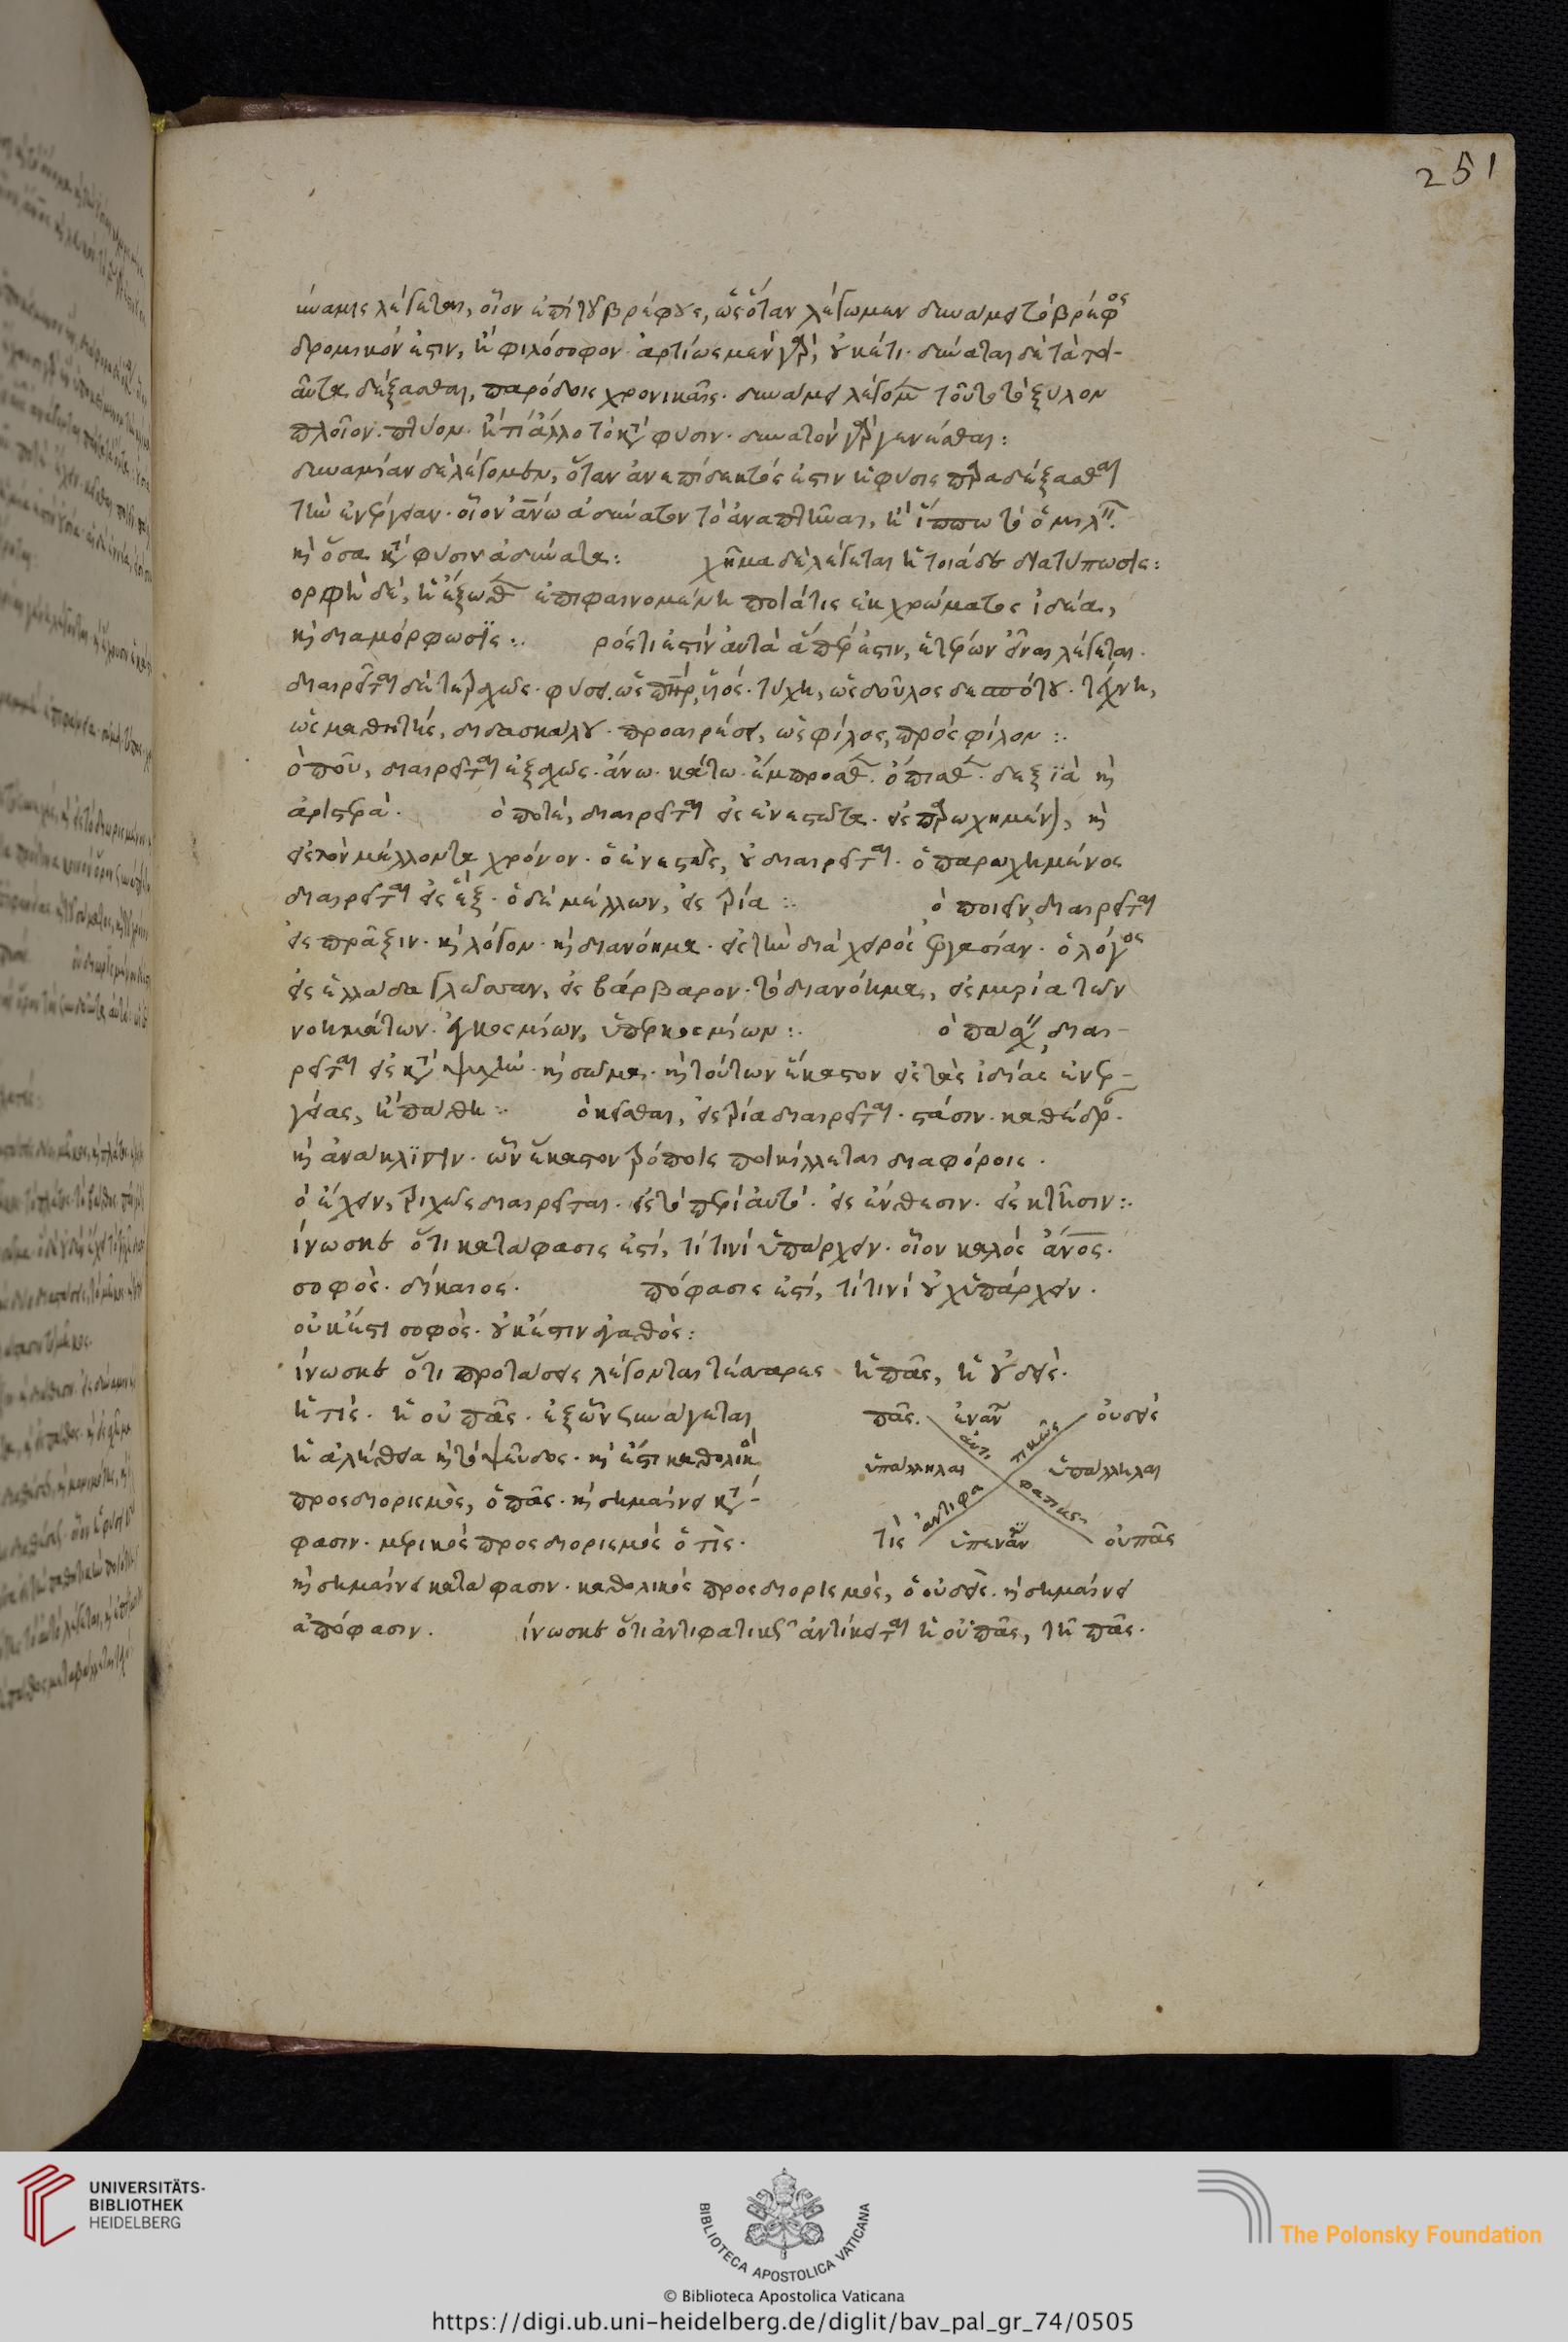 251
ύναμις λέγεται, οἷον ἐπὶ τοῦ βρέφους, ὡς ὅταν λέγωμεν δυνάμει τὸ βρέφος
δρομικόν ἐστιν, ἢ φιλόσοφον· ἀρτίως μὲν γὰρ, οὐκ ἔτι· δύναται δὲ τὰ
δέξασθαι, παρόδοις χρονικαῖς· δυνάμει λέγομεν τοῦτο τὸ ξύλον
πλοῖον· πτύον· ἤ τι ἄλλο τὸ κατὰ φύσιν· δυνατὸν γὰρ γενέσθαι:
δυναμίαν δὲ λέγομεν, ὅταν ἀνεπίδεκτός ἐστιν ἡ φύσις παραδέξασθαι
τὴν ἐνέργειαν· οἷον ἀνῶ ἀδύνατον τὸ ἀναπτῆναι, ἢ ἵππω τὸ ὁμιλ
καὶ ὅσα κατὰ φύσιν ἀδύνατα: χῆμα δὲ λέγεται ἡ τοιάδε διατύπωσις:
ορφὴ δέ, ἡ ἔξωθεν ἐπιφαινομένη ποιά τις ἐκ χρώματος ἰδέα,
καὶ διαμόρφωσϊς:· ρός τί ἐστιν αὐτὰ ἅπερ ἐστιν, ἑτέρων εἶναι λέγεται·
διαιρεῖται δὲ τετραχῶς· φύσει, ὡς πατὴρ, υἱός· τύχη, ὡς δοῦλος δεσπότου· τέχνη,
ὡς μαθητής, διδασκάλου· προαιρέσει, ὡς φίλος, πρὸς φίλον:·
ὁ ποῦ, διαιρεῖται ἑξαχῶς· ἄνω· κάτω· ἔμπροσθεν· ὄπισθεν· δεξϊὰ καὶ
ἀριστερά· ὁ ποτέ, διαιρεῖται εἰς ἐνεστῶτα· εἰς παρωχημένον, καὶ
εἰς τὸν μέλλοντα χρόνον· ὁ ἐνεστὼς, οὐ διαιρεῖται· ὁ παρωχημένος
διαιρεῖται εἰς ἕξ· ὁ δὲ μέλλων, εἰς τρία:· ὁ ποιεῖν, διαιρεῖται
εἰς πρᾶξιν· καὶ λόγον· καὶ διανόημα· εἰς τὴν διὰ χειρὸς ἐργασίαν· ὁ λόγος
εἰς ἑλλάδα γλῶσσαν, εἰς βάρβαρον· τὸ διανόημα, εἰς μυρία τῶν
νοημάτων· ἐγκοσμίων, ὑπερκοσμίων:· ὁ πάσχειν, διαι-
ρεῖται εἰς κατὰ ψυχὴν· καὶ σῶμα· καὶ τούτων ἕκαστον εἰς τὰς ἰδίας ἐνερ-
γείας, ἢ πάθη:· ὁ κεῖσθαι, εἰς τρία διαιρεῖται· στάσιν· καθέδραν·
καὶ ἀνάκλϊσιν· ὧν ἕκαστον τρόποις ποικίλλεται διαφόροις·
ὁ ἔχειν, τριχῶς διαιρεῖται· εἰς τὸ περὶ αὐτό· εἰς ἔνθεσιν· εἰς κτῆσιν:·
ίνωσκε ὅτι κατάφασις ἐστί, τί τινὶ ὑπάρχειν· οἷον καλὸς ἄνος·
σοφὸς· δίκαιος· πόφασις ἐστί, τί τινὶ οὐχ ὑπάρχειν·
οὐκ ἔστι σοφὸς· οὐκ ἔστιν ἀγαθὸς:
ίνωσκε ὅτι προτάσεις λέγονται τέσσαρες ἡ πᾶς, ἡ οὐδεὶς·
ἡ τίς· ἡ οὐ πᾶς· ἐξ ὧν συνάγεται
ἡ ἀλήθεια καὶ τὸ ψεῦδος· καὶ ἔστι καθολικὸς
προσδιορισμὸς, ὁ πᾶς· καὶ σημαίνει κατά-
φασιν· μερικὸς προσδιορισμὸς ὁ τὶς·
καὶ σημαίνει κατάφασιν· καθολικὸς προσδιορισμὸς, ὁ οὐδεὶς· καὶ σημαίνει
ἀπόφασιν. ίνωσκε ὅτι ἀντιφατικῶς ἀντίκειται ἡ οὐ πᾶς, τῆ πᾶς·
πᾶς. ἐναν οὐδεὶς
ἀντι τικῶς
ὑπάλληλαι ὑπάλληλαι
ἀντιφα φατικῶς
τὶς ὑπεναν οὐ πᾶς
UNIVERSITÄTS-
BIBLIOTHEK
HEIDELBERG
BIBLIOTECA APOSTOLICA VATICANA
The Polonsky Foundation
© Biblioteca Apostolica Vaticana
https://digi.ub.uni-heidelberg.de/diglit/bav_pal_gr_74/0505